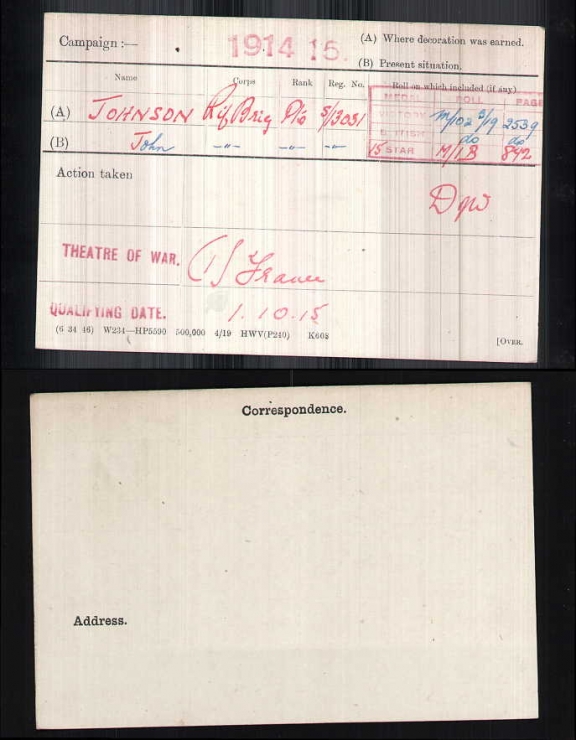 Campaign :— 1914 15. (A) Where decoration was earned.
(B) Present situation.
Name Corps Rank Reg. No. Roll on which included (if any)
MEDAL ROLL PAGE
(A) JOHNSON Rif Brig Pte S/3031 VICTORY M/102 B/19 2539
(B) John -"- -"- -"- BRITISH do do
15 STAR M/1B 842
Action taken
Dofw
THEATRE OF WAR. (1) France
QUALIFYING DATE. 1.10.15
(6 34 46) W234—HP5590 500,000 4/19 HWV(P240) K608
[OVER.
Correspondence.
Address.